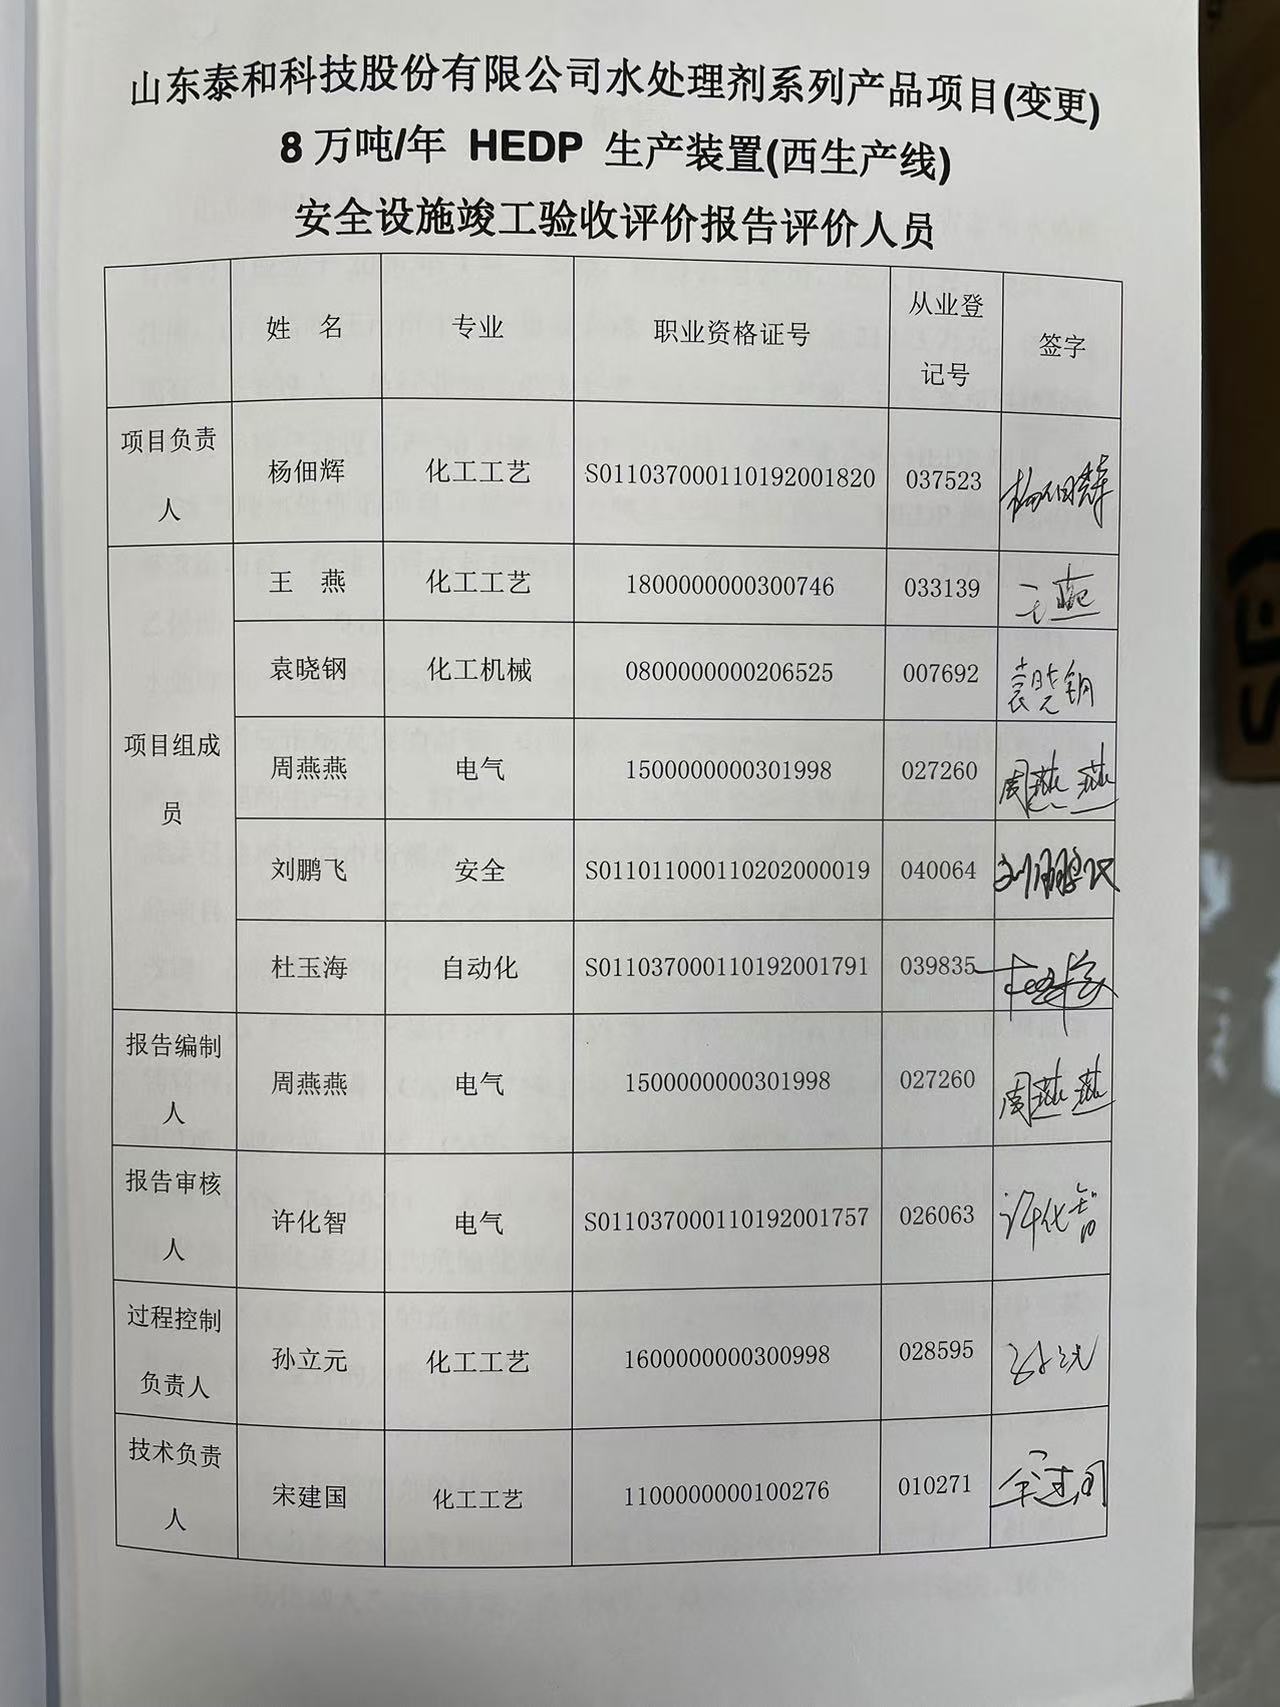 山东泰和科技股份有限公司水处理剂系列产品项目(变更)
8 万吨/年 HEDP 生产装置(西生产线)
安全设施竣工验收评价报告评价人员
姓 名 专业 职业资格证号 从业登记号 签字
项目负责人 杨佃辉 化工工艺 S011037000110192001820 037523 杨佃辉
项目组成员 王 燕 化工工艺 1800000000300746 033139 王燕
袁晓钢 化工机械 0800000000206525 007692 袁晓钢
周燕燕 电气 1500000000301998 027260 周燕燕
刘鹏飞 安全 S011011000110202000019 040064 刘鹏飞
杜玉海 自动化 S011037000110192001791 039835 杜玉海
报告编制人 周燕燕 电气 1500000000301998 027260 周燕燕
报告审核人 许化智 电气 S011037000110192001757 026063 许化智
过程控制负责人 孙立元 化工工艺 1600000000300998 028595 孙立元
技术负责人 宋建国 化工工艺 1100000000100276 010271 宋建国